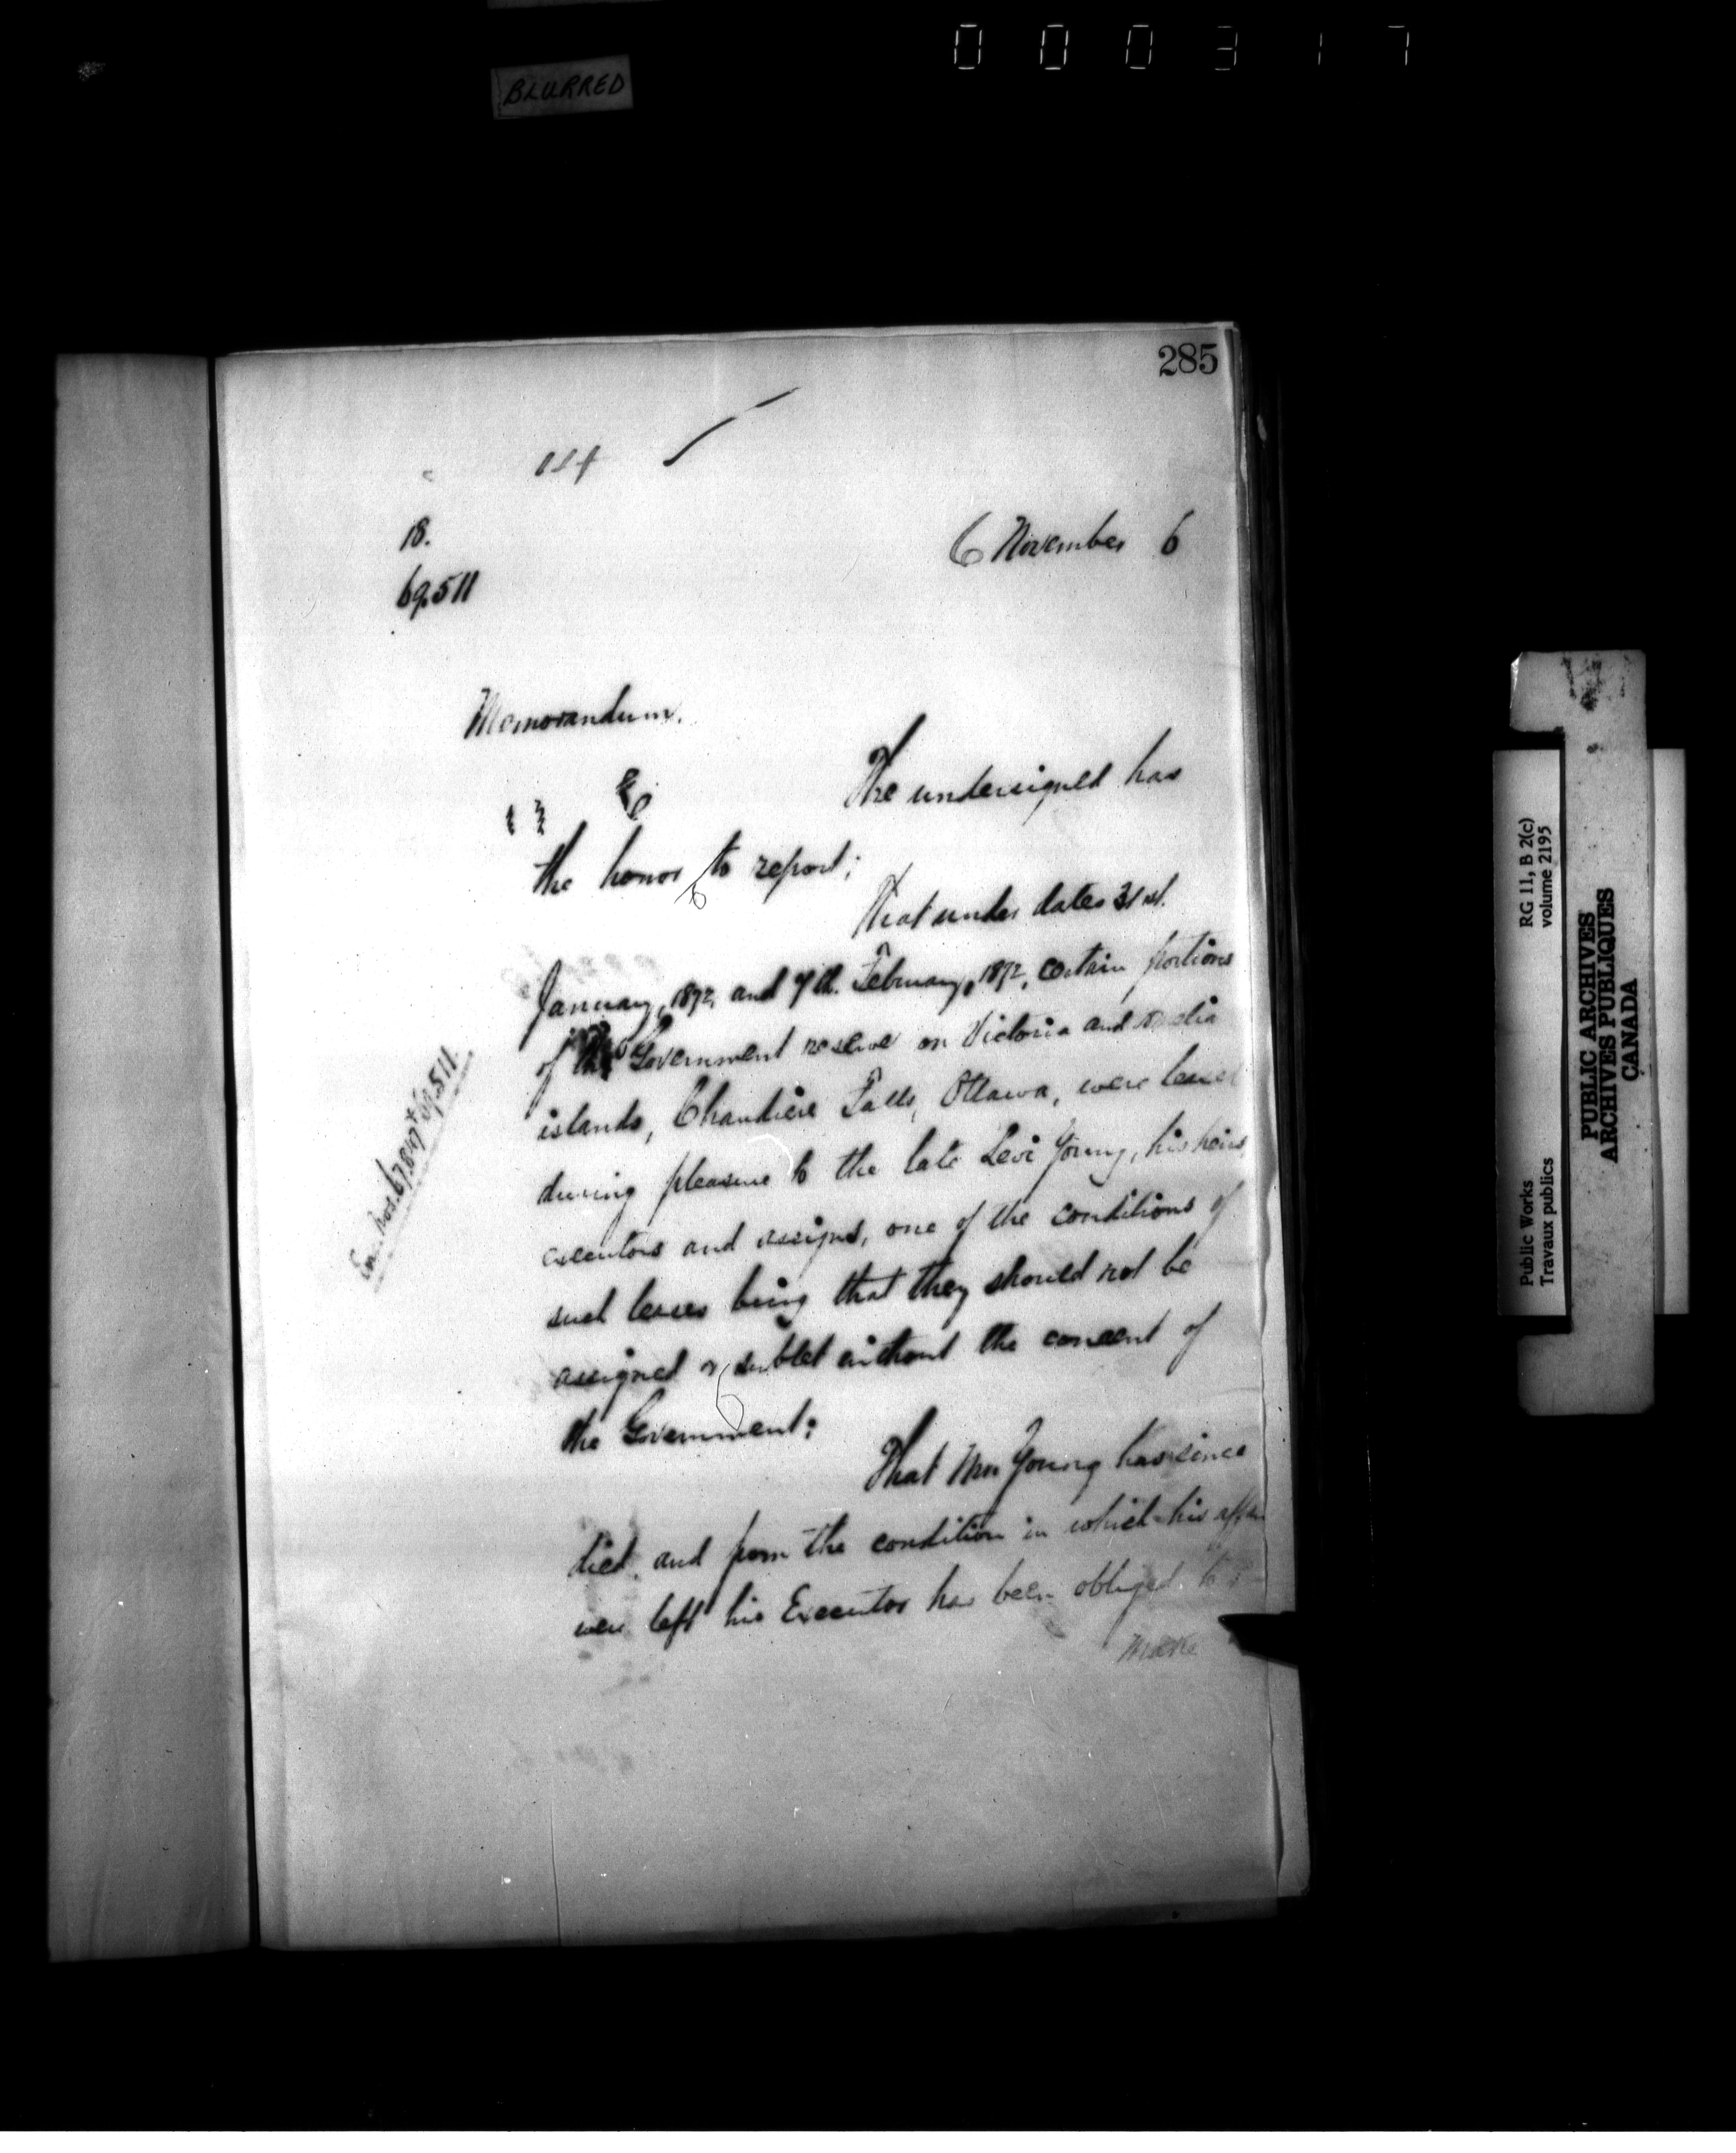 000317
BLURRED
285
114
18.
69,511
6 November 6
Memorandum.
The undersigned has
the honor to report;
That under dates 31st.
January, 1872, and 7th. February, 1872, certain portions
of the Government reserve on Victoria and Amelia
islands, Chaudiere Falls, Ottawa, were leased
during pleasure to the late Levi Young, his heirs
executors and assigns, one of the conditions of
such leases being that they should not be
assigned or sublet without the consent of
the Government;
That Mr Young has since
died, and from the condition in which his affairs
were left his Executor has been obliged to
make
nos. 67,847 & 69,511.
RG 11, B 2(c)
volume 2195
Public Works
Travaux publics
PUBLIC ARCHIVES
ARCHIVES PUBLIQUES
CANADA